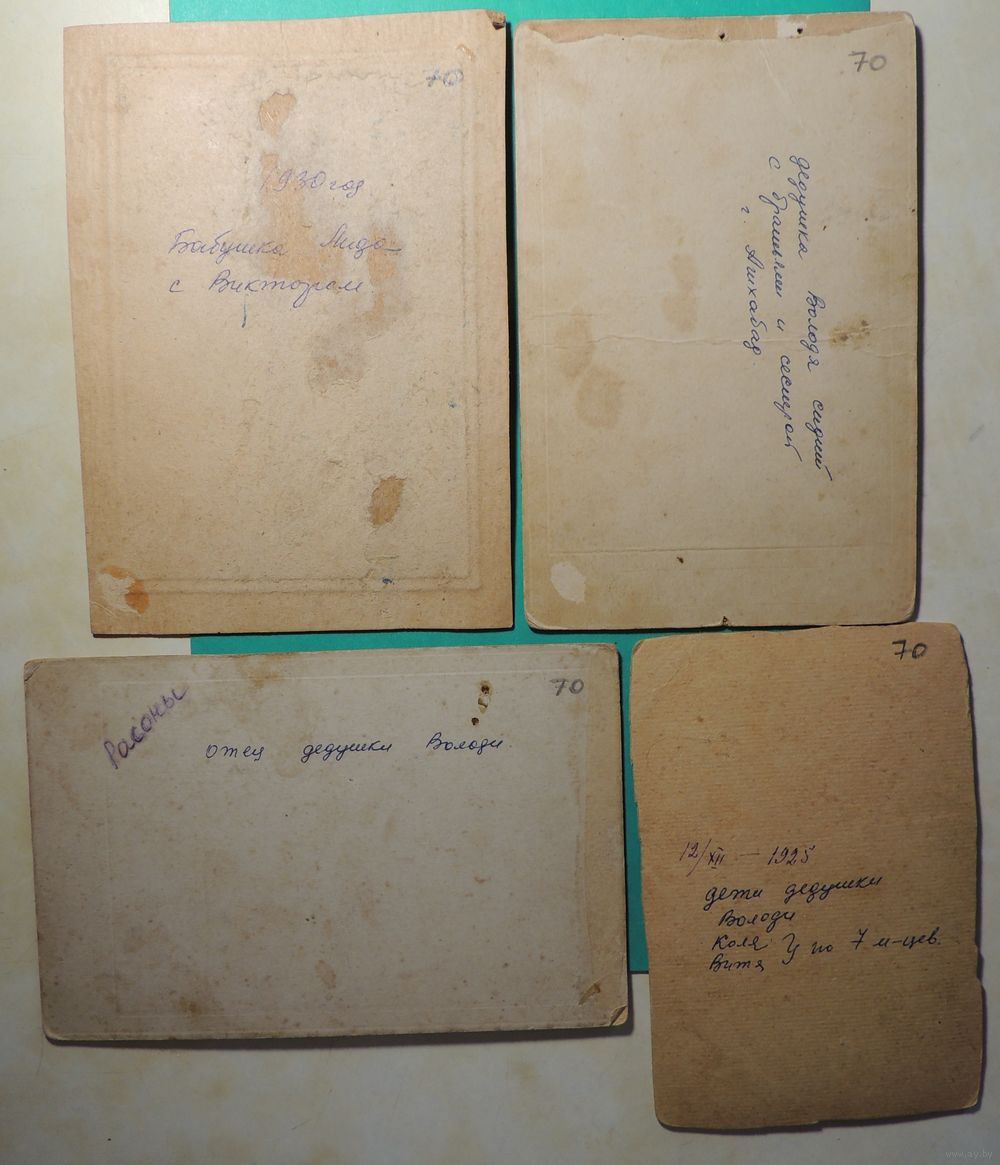 70
1930 год
Бабушка Лида
с Виктором
70
дедушка Володя сидит
с братьями и сестрой
г. Ашхабад.
70
Расоны
отец дедушки Володи.
70
12/XII — 1925
дети дедушки
Володи
Коля } по 7 м-цев.
Витя
www.ay.by